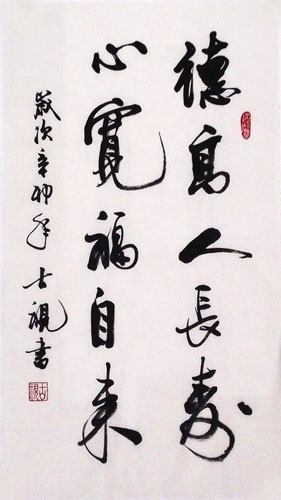 德高人長壽
心寬福自来
歲次辛卯年士視書